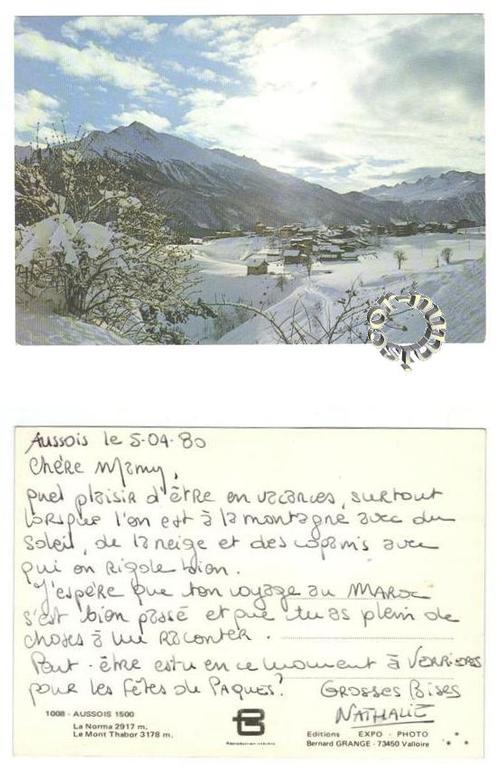 Aussois le 5-04-80
Chère Mamy,
quel plaisir d'être en vacances, surtout
lorsque l'on est à la montagne avec du
soleil, de la neige et des copains avec
qui on rigole bien.
J'espère que ton voyage au MAROC
s'est bien passé et que tu as plein de
choses à me raconter.
Peut-être es tu en ce moment à VERRIERES
pour les fêtes de Paques?
GROSSES BISES
NATHALIE
1008 - AUSSOIS 1500
La Norma 2917 m.
Le Mont Thabor 3178 m.
Reproduction interdite
Editions EXPO - PHOTO
Bernard GRANGE - 73450 Valloire